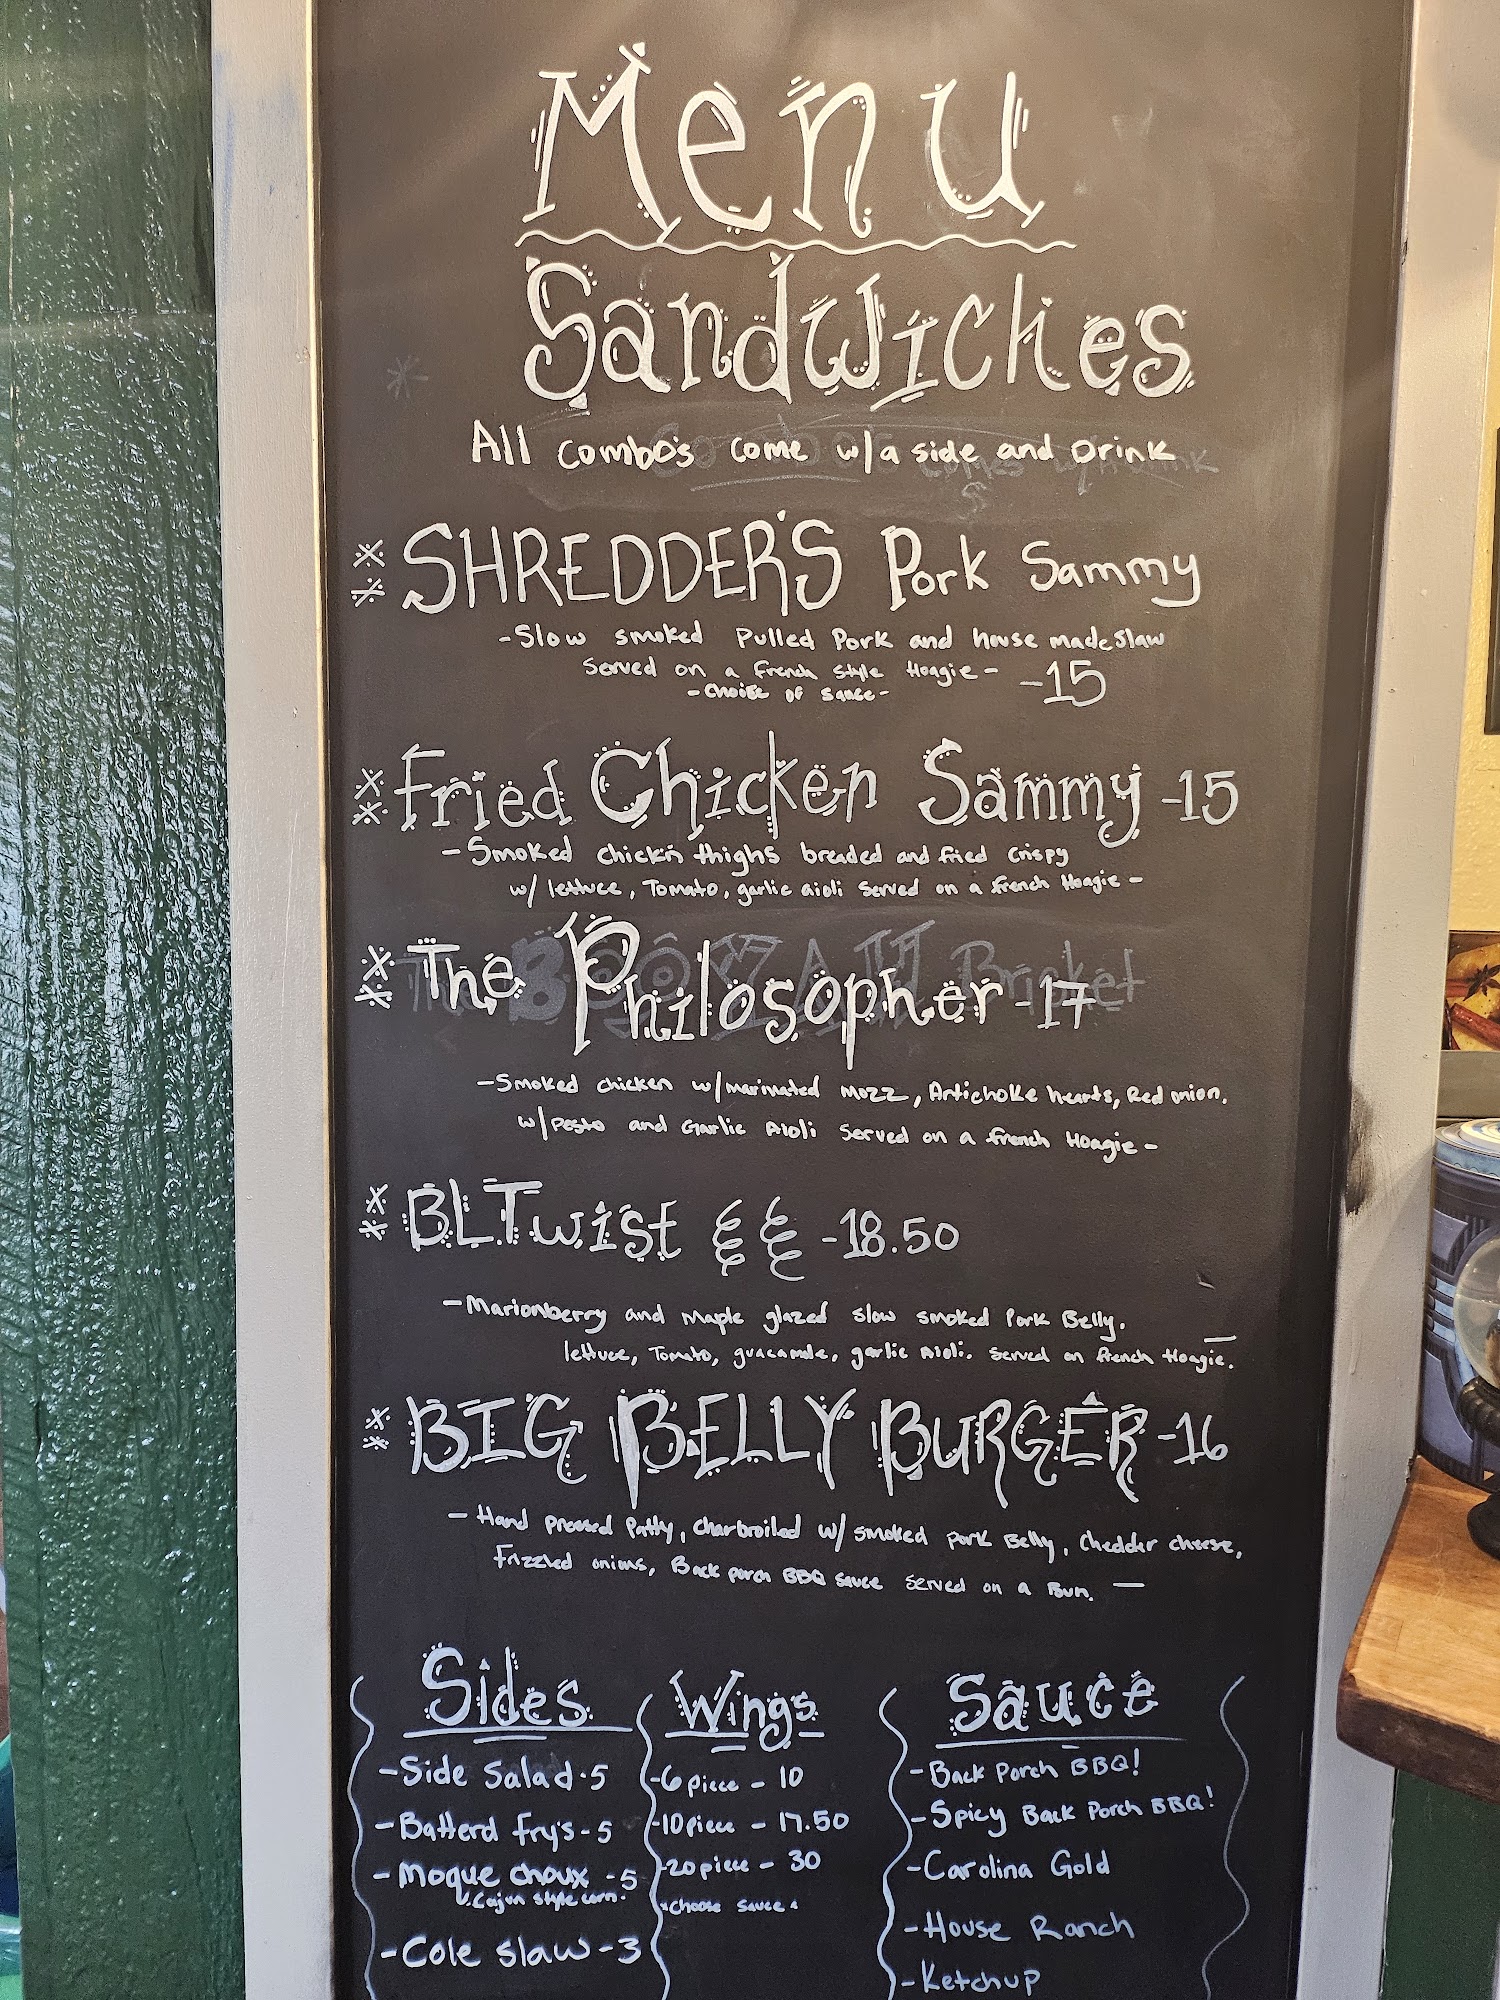 Menu
Sandwiches
All combo's come w/a side and Drink
SHREDDER'S Pork Sammy
-Slow smoked Pulled Pork and house made slaw
Served on a french style Hoagie- -15
-Choice of sauce-
Fried Chicken Sammy -15
-Smoked chick'n thighs breaded and fried crispy
w/ lettuce, Tomato, garlic aioli served on a french Hoagie-
The Philosopher -17
-Smoked chicken w/marinated mozz, Artichoke hearts, Red onion.
w/pesto and Garlic Aioli served on a french Hoagie-
BLTwist -18.50
-Marionberry and maple glazed slow smoked Pork Belly.
lettuce, Tomato, guacamole, garlic Aioli. served on french Hoagie.-
BIG BELLY BURGER -16
- Hand pressed Patty, charbroiled w/ smoked pork Belly, Chedder cheese,
frizzled onions, Back porch BBQ sauce served on a Bun. -
Sides
-Side Salad-5
-Batterd fry's-5
-Moque choux -5
Cajun style corn.
-Cole slaw-3
Wings
-6 piece - 10
-10 piece - 17.50
-20 piece - 30
*Choose sauce*
Sauce
-Back Porch BBQ!
-Spicy Back Porch BBQ!
-Carolina Gold
-House Ranch
-Ketchup